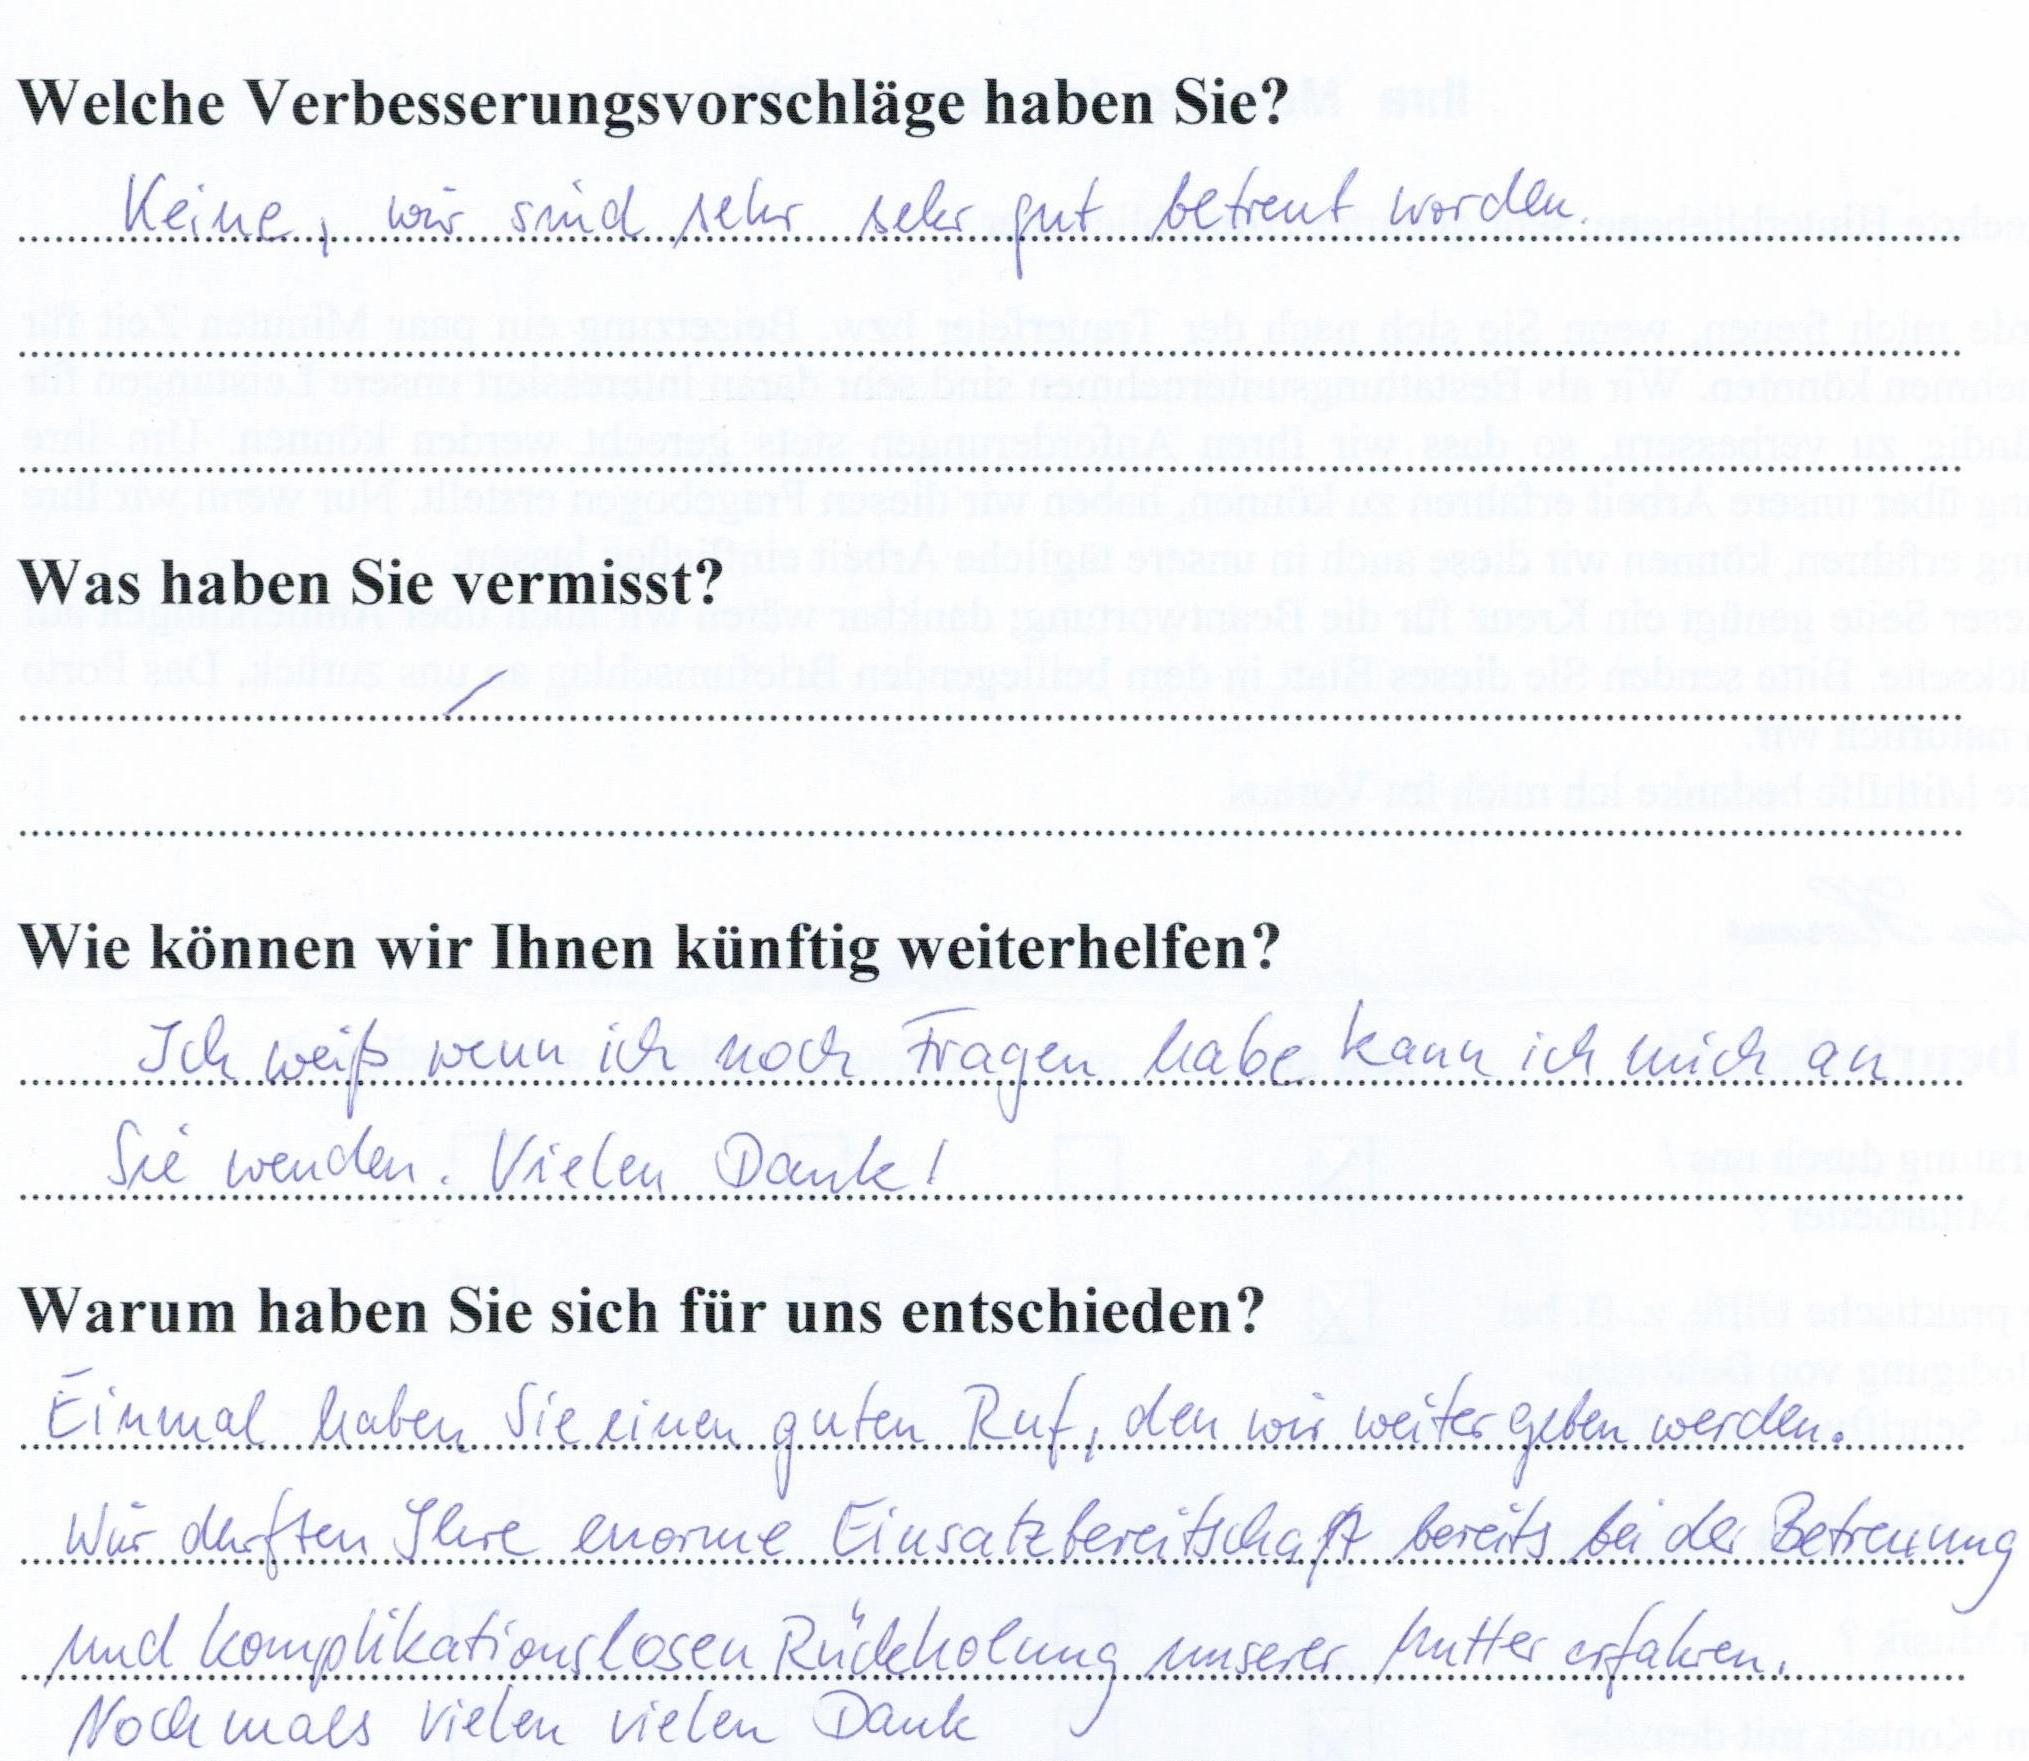 Welche Verbesserungsvorschläge haben Sie?
Keine, wir sind sehr sehr gut betreut worden.
Was haben Sie vermisst?
/
Wie können wir Ihnen künftig weiterhelfen?
Ich weiß wenn ich noch Fragen habe kann ich mich an
Sie wenden. Vielen Dank!
Warum haben Sie sich für uns entschieden?
Einmal haben Sie einen guten Ruf, den wir weiter geben werden.
Wir durften Ihre enorme Einsatzbereitschaft bereits bei der Betreuung
und komplikationslosen Rückholung unserer Mutter erfahren.
Nochmals vielen vielen Dank